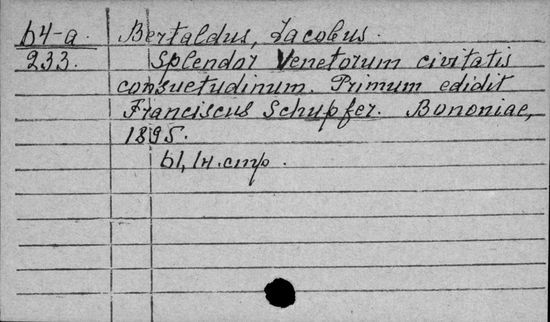 64-a.
233.
Bertaldus, Jacobus.
Splendor Venetorum civitatis
consuetudinum. Primum edidit
Franciscus Schupfer. Bononiae,
1895.
61, IX. стр.